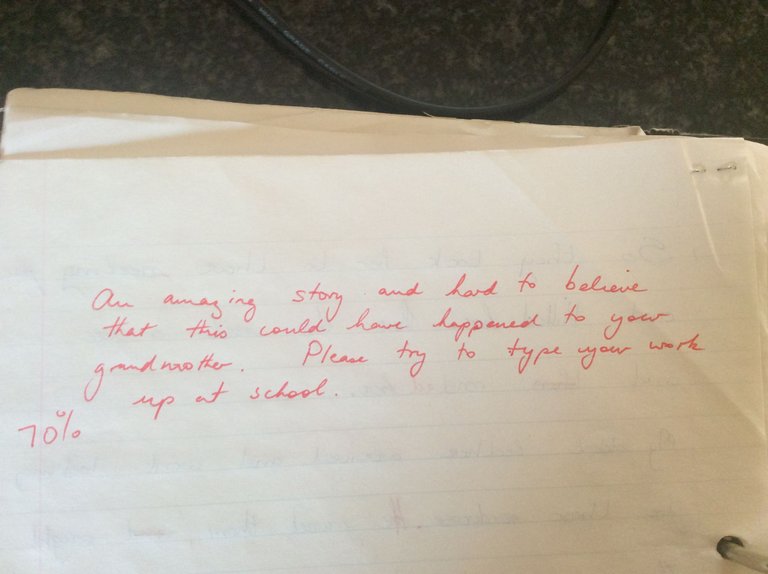 An amazing story and hard to believe
that this could have happened to your
grandmother. Please try to type your work
up at school.
70%